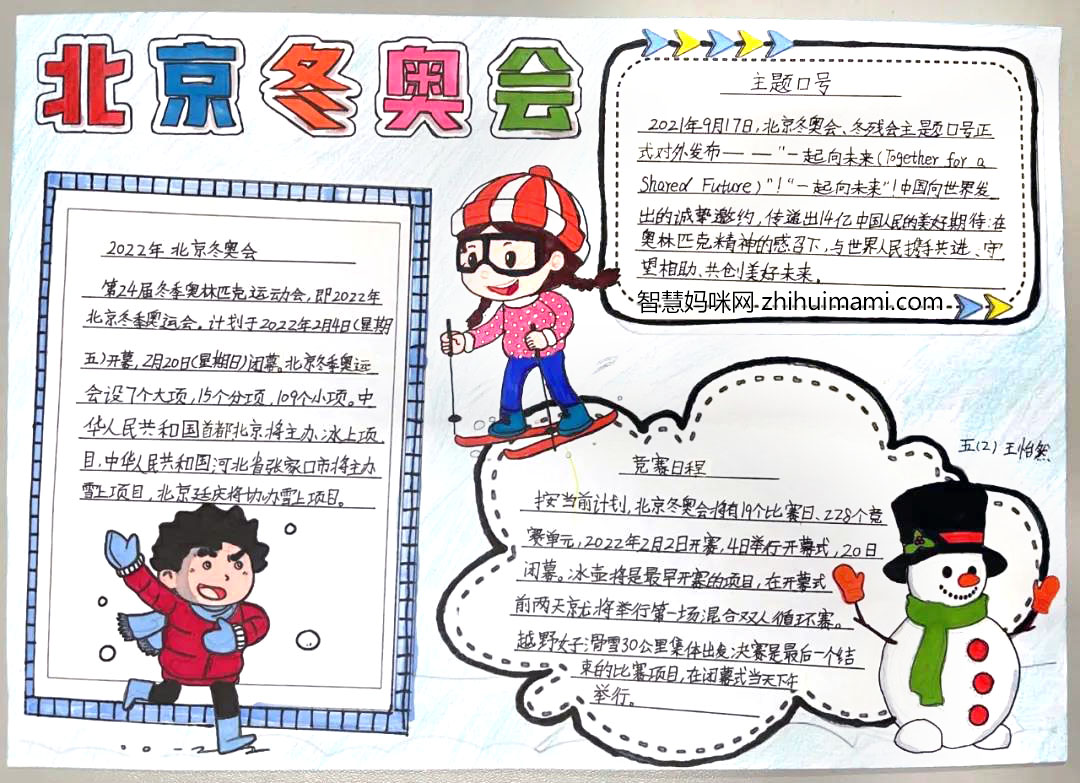 北京冬奥会
2022年北京冬奥会
第24届冬季奥林匹克运动会，即2022年
北京冬季奥运会。计划于2022年2月4日(星期
五)开幕，2月20日(星期日)闭幕。北京冬季奥运
会设7个大项，15个分项，109个小项。中
华人民共和国首都北京将主办冰上项
目，中华人民共和国河北省张家口市将主办
雪上项目，北京延庆将协办雪上项目。
主题口号
2021年9月17日，北京冬奥会、冬残会主题口号正
式对外发布——"一起向未来(Together for a
Shared Future)"！"一起向未来"！中国向世界发
出的诚挚邀约，传递出14亿中国人民的美好期待：在
奥林匹克精神的感召下，与世界人民携手共进、守
望相助、共创美好未来。
智慧妈咪网-zhihuimami.com
五(2) 王怡然
竞赛日程
按当前计划，北京冬奥会将有19个比赛日、228个竞
赛单元，2022年2月2日开赛，4日举行开幕式，20日
闭幕。冰壶将是最早开赛的项目，在开幕式
前两天就将举行第一场混合双人循环赛。
越野女子滑雪30公里集体出发决赛是最后一个结
束的比赛项目，在闭幕式当天下午
举行。